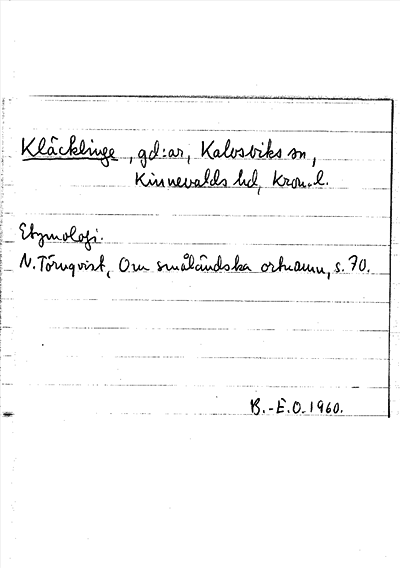 Kläcklinge, gd:ar, Kalvsviks sn,
Kinnevalds hd, Kron. l.
Etymologi.
N. Törnqvist, Om småländska ortnamn, s. 70.
B.-E.O. 1960.